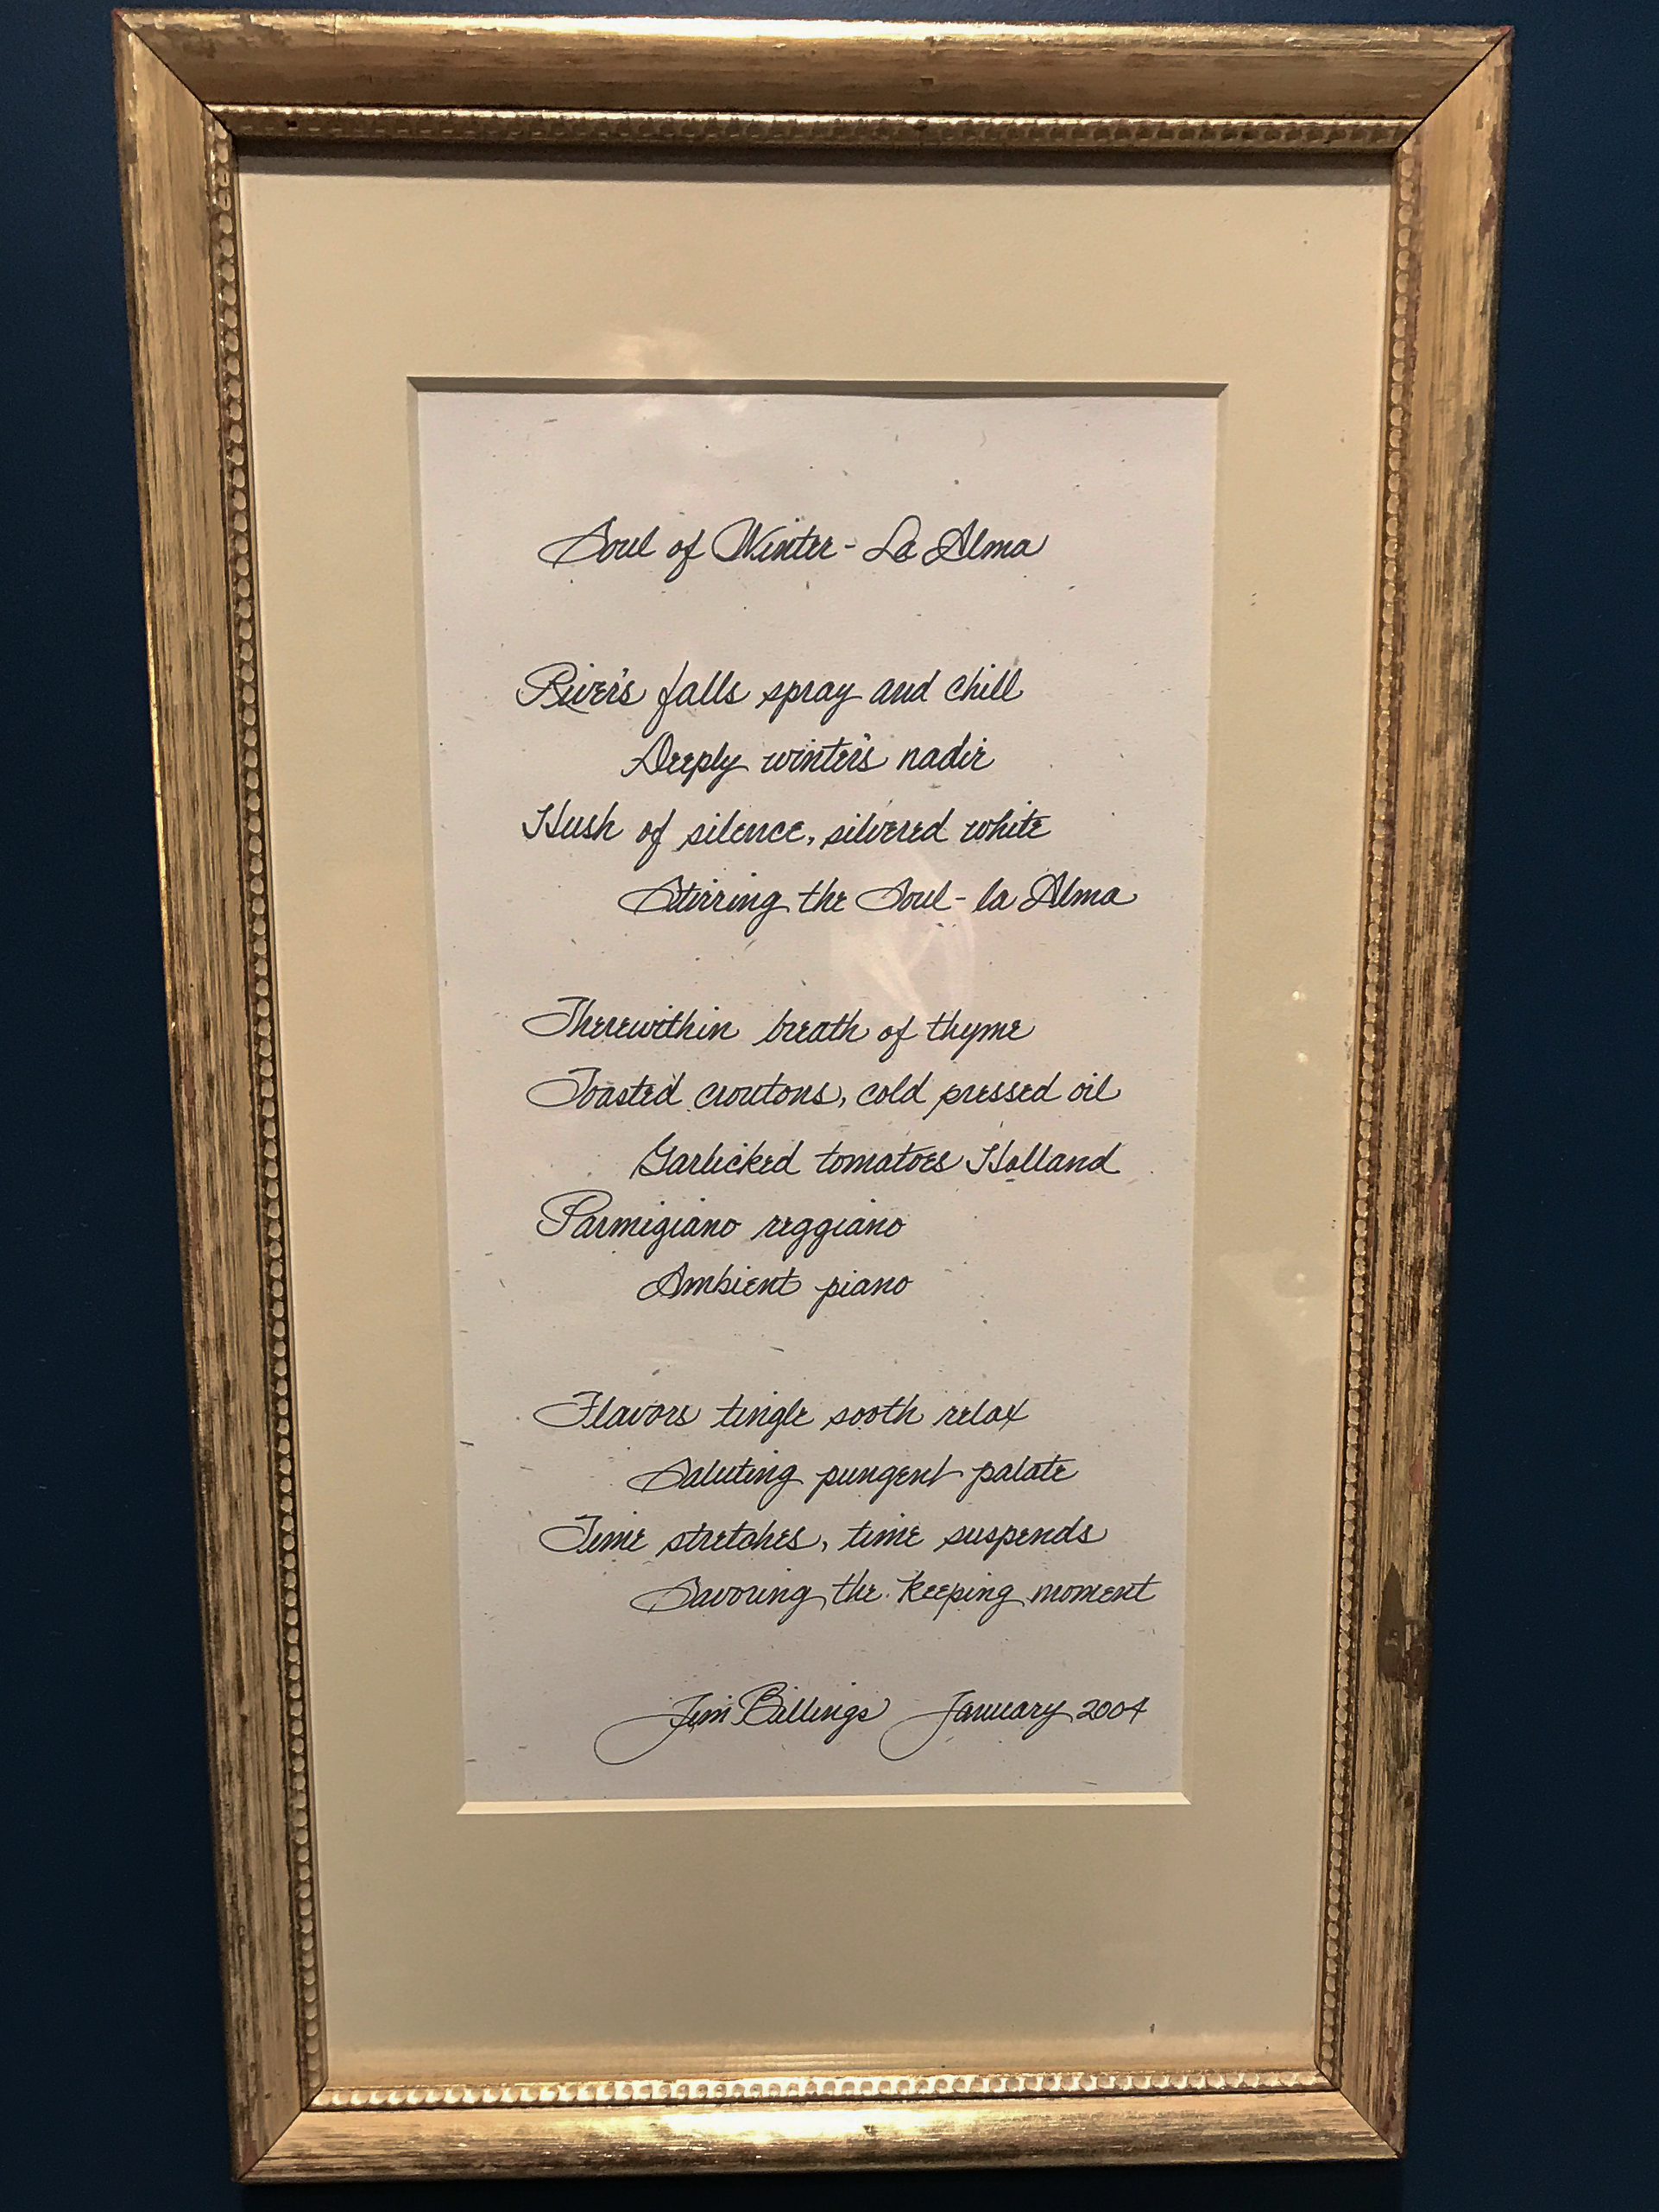 Soul of Winter - La Alma
River's falls spray and chill
Deeply winter's nadir
Hush of silence, silvered white
Stirring the Soul - la Alma
Therewithin breath of thyme
Toasted croutons, cold pressed oil
Garlicked tomatoes Holland
Parmigiano reggiano
Ambient piano
Flavors tingle sooth relax
Saluting pungent palate
Time stretches, time suspends
Savoring the keeping moment
Jim Billings January 2004